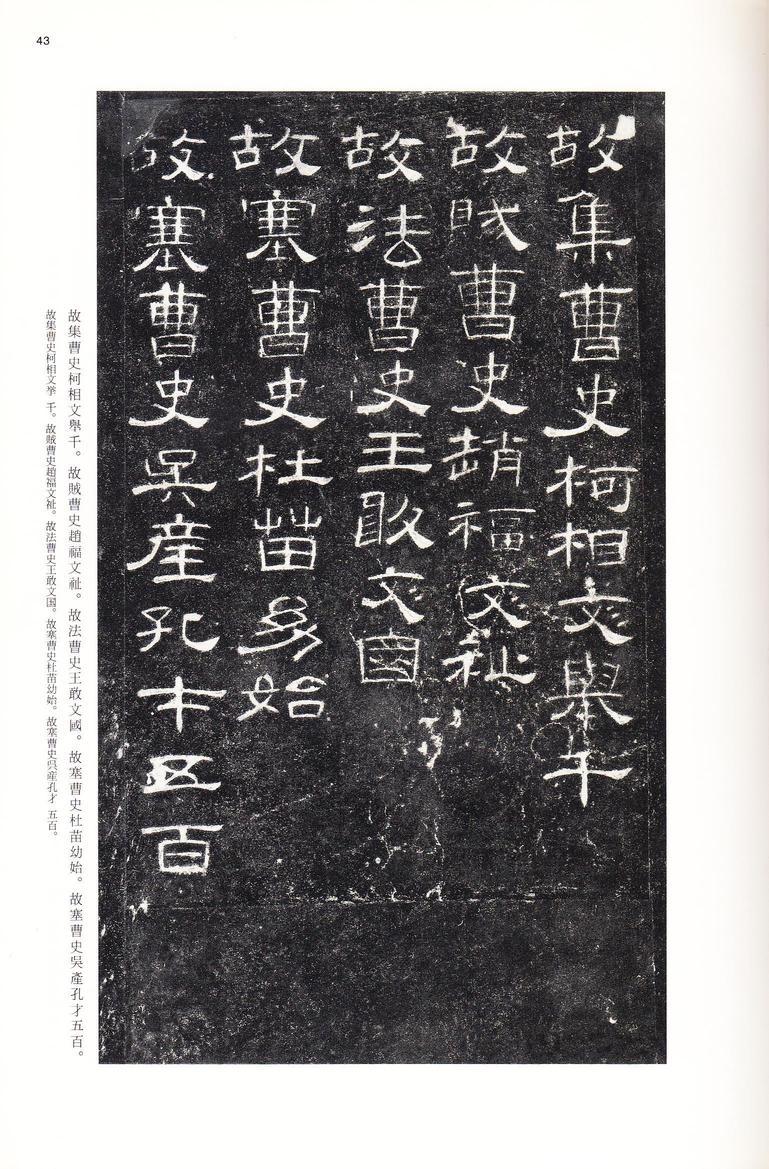 43
故集曹史柯相文舉千
故賊曹史趙福文祉
故法曹史王敢文國
故塞曹史杜苗幼始
故塞曹史吳產孔才五百
故集曹史柯相文舉千。故賊曹史趙福文祉。故法曹史王敢文國。故塞曹史杜苗幼始。故塞曹史吳產孔才五百。
故集曹史柯相文举 千。故賊曹史趙福文祉。故法曹史王敢文国。故塞曹史杜苗幼始。故塞曹史呉産孔才 五百。